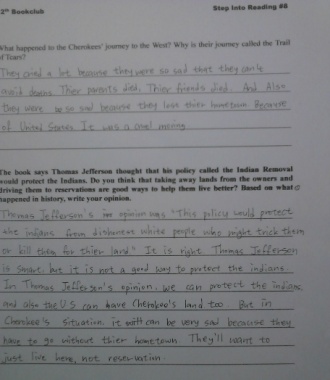 2th Bookclub
Step Into Reading #8
What happened to the Cherokees' journey to the West? Why is their journey called the Trail
of Tears?
They cried a lot because they were so sad that they can't
avoid deaths. Thier parents died, Thier friends died. And Also
they were so sad because they lose thier hometown. Because
of United States. It was a cruel moving
The book says Thomas Jefferson thought that his policy called the Indian Removal
would protect the Indians. Do you think that taking away lands from the owners and
driving them to reservations are good ways to help them live better? Based on what
happened in history, write your opinion.
Thomas Jefferson's opinion was "This policy could protect
the indians from dishonest white people who might trick them
or kill them for thier land." It is right. Thomas Jefferson
is smart, but it is not a good way to protect the indians.
In Thomas Jefferson's opinion, we can protect the indians,
and also the U.S can have Cherokee's land too. But in
Cherokee's situation, it can be very sad because they
have to go without thier hometown. They'll want to
just live here, not reservation.